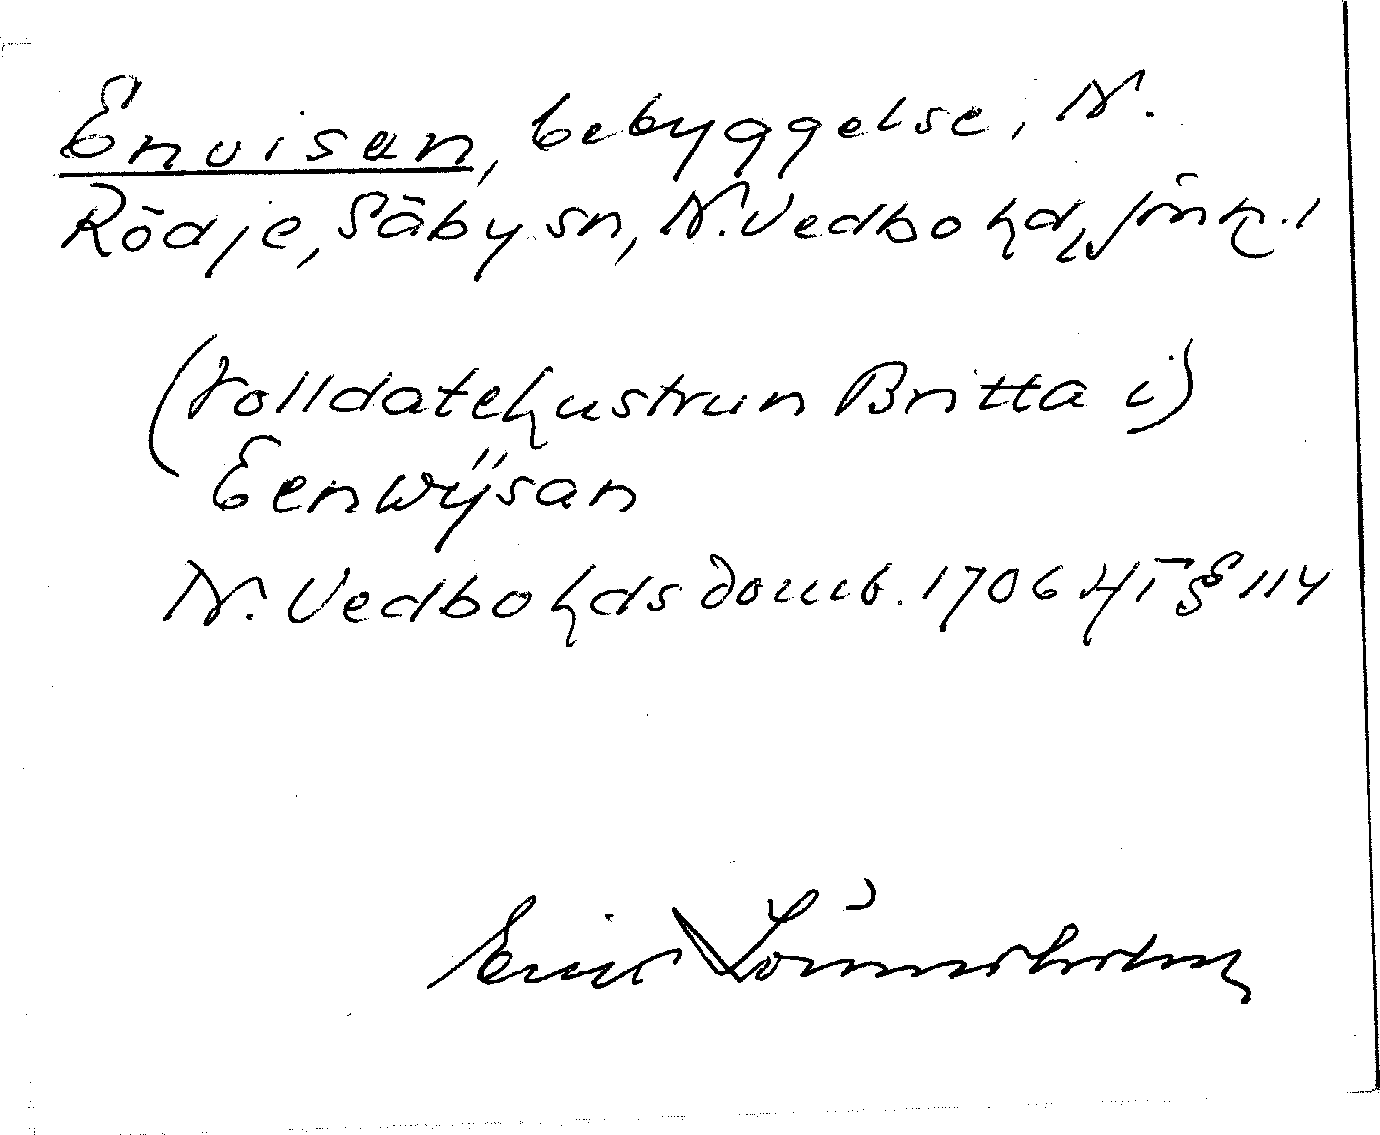 Envisan, bebyggelse, N.
Rödje, Säby sn, N. Vedbo hd, Jönk. l
(solldatehustrun Britta i)
Eenwÿsan
N. Vedbo hds domb. 1706 HT § 114
Eric